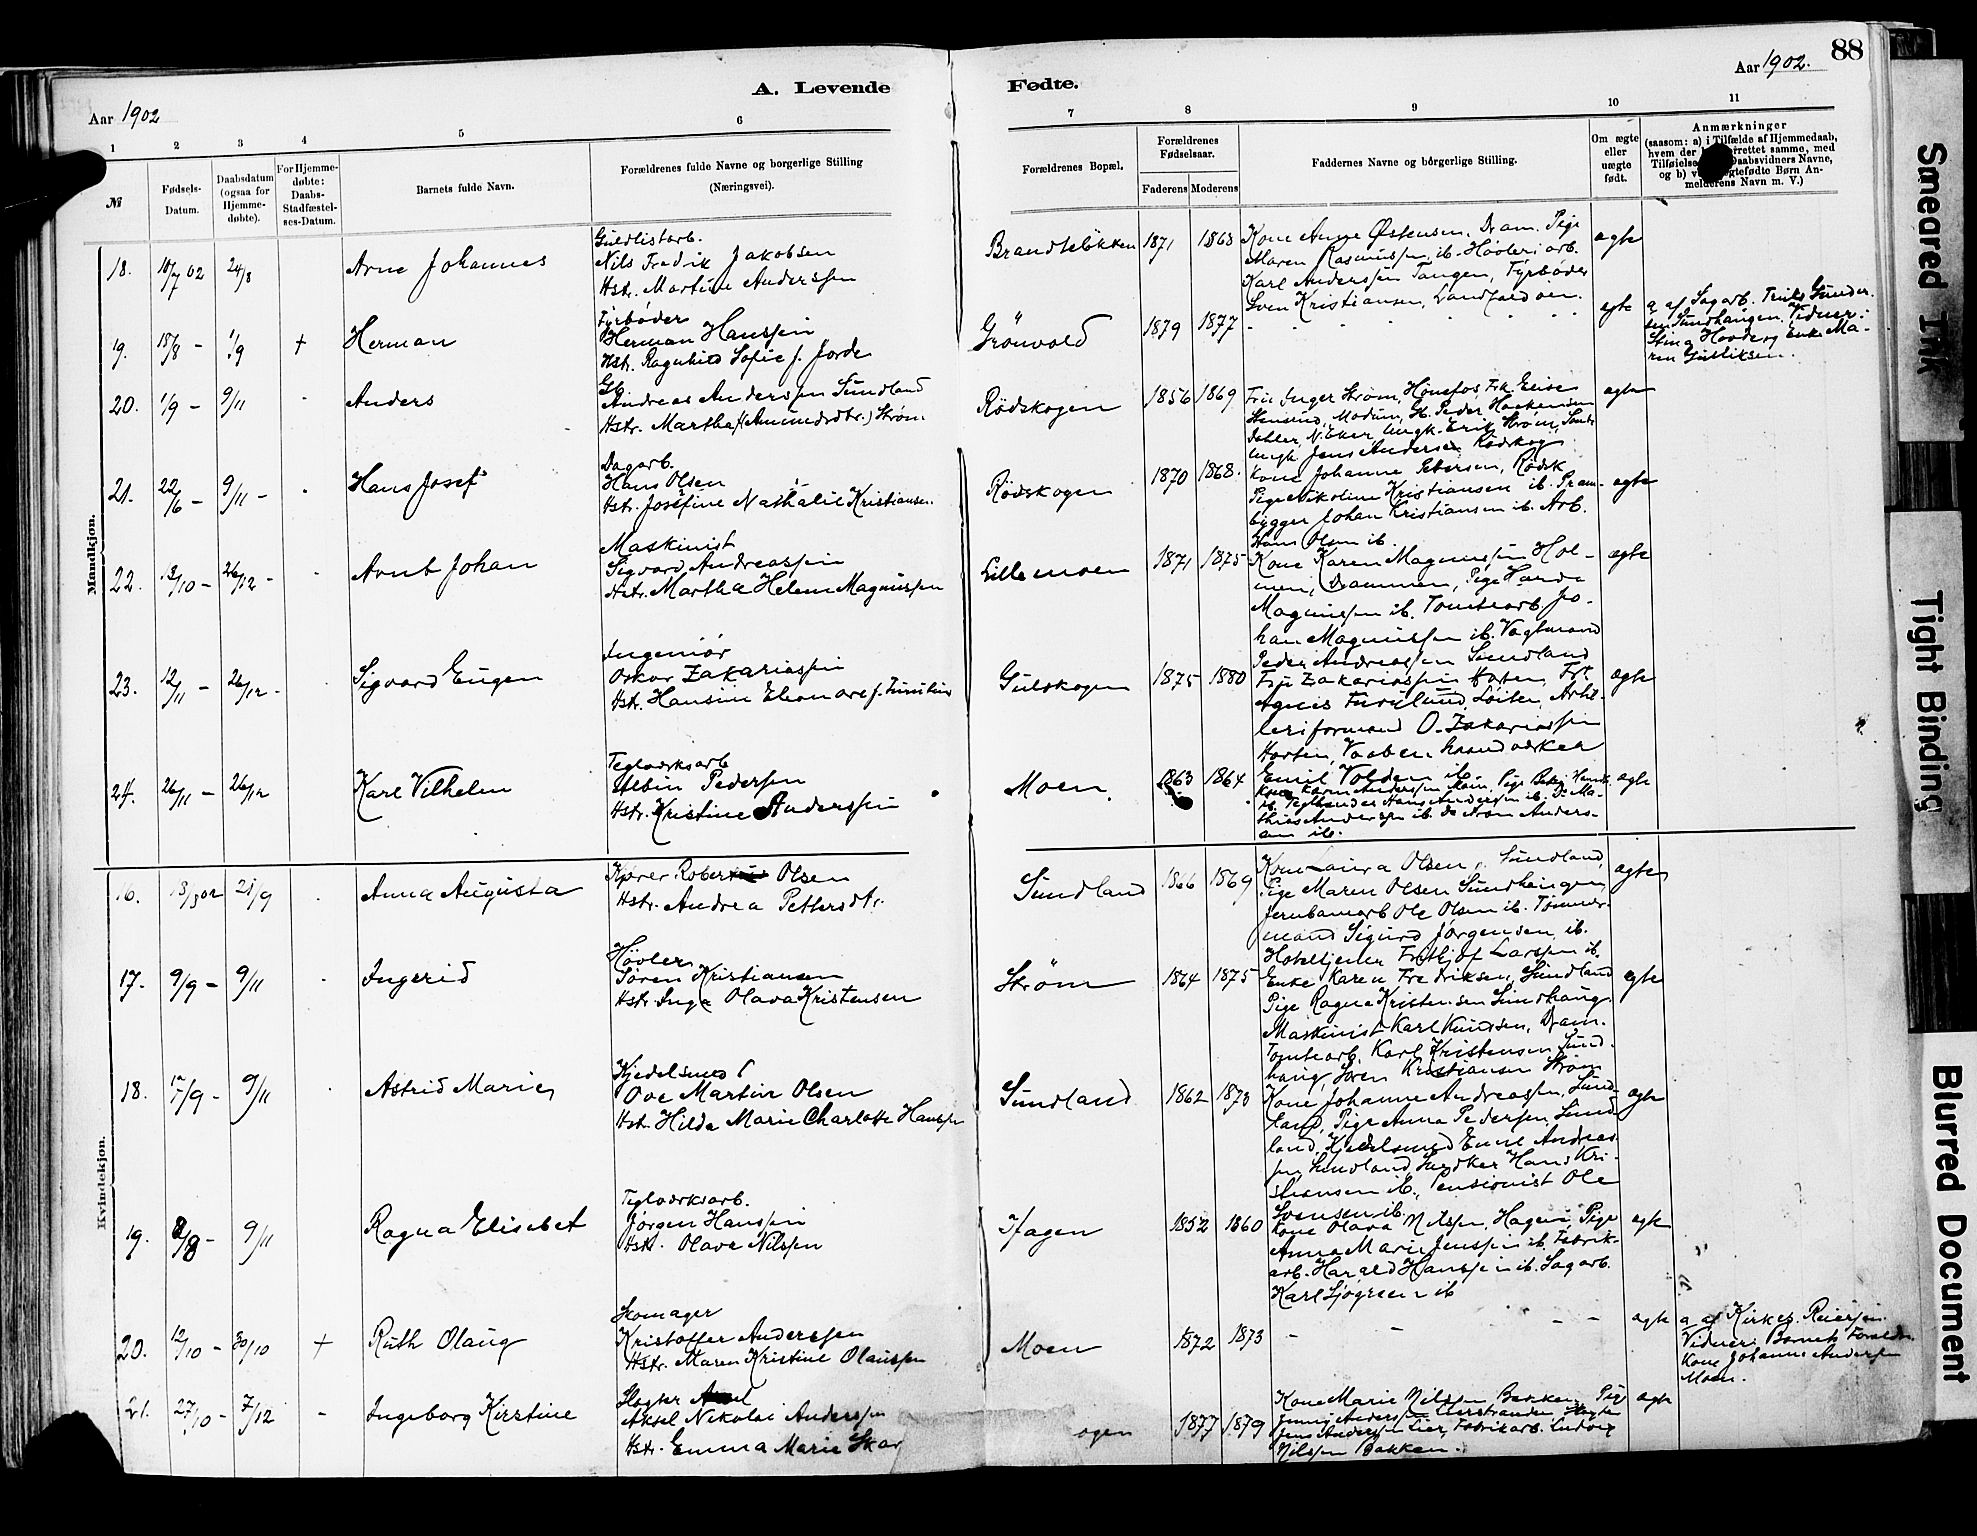 88
Aar 1902
A. Levende
Fødte.
Aar 1902.
1 2 3 4 5 6 7 8 9 10 11
№
Fødsels-
Datum.
Daabsdatum
(ogsaa for
Hjemme-
døbte).
For Hjemme-
døbte:
Daabs-
Stadfæstel-
ses-Datum.
Barnets fulde Navn.
Forældrenes fulde Navne og borgerlige Stilling
(Næringsvei).
Forældrenes Bopæl.
Forældrenes
Fødselsaar.
Faderens Moderens
Faddernes Navne og bórgerlige Stilling.
Om ægte
eller
uægte
født.
Anmærkninger
(saasom: a) i Tilfælde af Hjemmedaab,
hvem der forrettet samme, med
Tilføielse Daabsvidners Navne,
og b) v gtefødte Børn An-
melderens Navn m. V.)
Mandkjøn.
18. 10/7 02 24/8 Arne Johannes
Guldlistarb.
Nils Fredrik Jakobsen
Hstr. Martine Anderssen
Brandteløkken 1871 1863
Kone Anne Østensen, Dram. Pige
Maren Rasmussen, ib. Høvleriarb.
Karl Anderssen Tangen, Fyrbøder
Sven Kristiansen, Landfaldøien.
ægte
19. 15/8 - 1/9 + Herman
Fyrbøder
Herman Hanssen
Hstr. Ragnhild Sofie f. Jorde
Grönvold 1879 1877
ægte
a af Sagarb. Gunder-
sen Sundhaugen. Vidner:
Stina og Enke Ma-
ren Gulliksen.
20. 1/9 - 9/11 - Anders
Gb.
Andreas Anderssen Sundland
Hstr. Martha (Amundsdtr.) Strøm
Rödskogen 1856 1869
Fru Inger Strøm, Hønefos, Frk Elise
Stensrud, Modum, Gb. Peder Haakensen
Dahler, N. Eker, Ungk. Erik Strøm,
Ungk. Jens Andersen Rödskog
ægte
21. 22/6 - 9/11 - - Hans Josef
Dagarb.
Hans Olsen
Hstr. Josefine Nathalie Kristiansen.
Rödskogen 1870 1868.
Kone Johanne Petersen, Rödsk.
Pige Nikoline Kristiansen ib. Pram-
bygger Johan Kristiansen ib. Arb.
Hans Olsen ib.
ægte
22. 13/10 - 26/12 - - Arnt Johan
Maskinist
Sigvard Andreassen
Hstr. Martha Helene Magnussen
Lillemoen 1871 1875
Kone Karen Magnussen Hol-
men, Drammen, Pige Harda
Magnussen ib. Tomtearb. Jo-
han Magnussen ib. Vagtmand
Peder Andreassen Sundland
ægte
23. 12/11 - 26/12 - Sigvard Eugen
Ingeniør
Oskar Zakariassen
Hstr. Hansine Eleonore f. Furulund
Gulskogen 1875 1880
Fru Zakariassen Horten, Frk.
Agnes Furulund, Løiten, Artil-
leriformand O. Zakariassen
Horten, Vaabenhaandverker
Emil Volden ib.
ægte
24. 26/11 - 26/12 Karl Vilhelm
Teglværksarb
Albin Pederssen
Hstr. Kristine Anderssen
Moen. 1863 1864
Kone Karen Anderssen Moen, Pige
ib. Teglbrænder Hans Andersen ib. Do Ma-
thias Anderssen ib. do Aron Anders-
sen ib.
ægte
Kvindekjøn.
16. 13/5 02 21/9 - Anna Augusta
Kjører Robert Olsen
Hstr. Andrea Pettersdtr.
Sundland 1866 1869
Kone Laura Olsen, Sundland,
Pige Maren Olsen Sundhaugen,
Jernbanearb Ole Olsen ib. Tømmer-
mand Sigurd Jørgensen ib.
Hoteltjener Fritjof Larssen ib.
ægte
17. 9/9 - 9/11 - Ingerid
Høvler
Søren Kristiansen
Hstr. Inga Olava Kristensen
Strøm 1864 1875
Enke Karen Fredriksen, Sundland
Pige Ragna Kristensen Sundhaug.
Maskinist Karl Knudsen, Dram.
Tomtearb. Karl Kristensen Sund-
haug, Søren Kristiansen Strøm
ægte
18. 17/9 - 9/11 - Astrid Marie
Kjedelsmed
Ove Martin Olsen
Hstr. Hilda Marie Charlotte Hanssen
Sundland 1862 1873
Kone Johanne Andreassen, Sund-
land, Pige Anna Pederssen, Sund-
land, Kjedelsmed Emil Andreas-
sen Sundland, Snedker Hans Kri-
stiansen ib., Pensionist Ole
Svensen ib.
ægte
19. 8/8 - 9/11 Ragna Elisebet
Teglværksarb.
Jørgen Hanssen
Hstr. Olava Nilssen
Hagen 1852 1860
Kone Olava Nilssen, Hagen, Pige
Anna Marie Jenssen ib. Fabrik-
arb. Harald Hanssen ib. Sagarb.
Karl Sjøgreen ib
ægte
20. 12/10 - 30/10 + Ruth Olaug
Skomager
Kristoffer Anderssen
Hstr. Maren Kristine Olaussen
Moen 1872 1873
- - - -
ægte
a af Kirkes. Reierssen.
Vidner: Barnets Forældre
Kone Johanne Anderssen
Moen.
21. 27/10 - 7/12 - Ingeborg Kirstine
Slagter
Aksel Nikolai Anderssen
Hstr. Emma Marie Skar
ogen 1877 1879
Kone Marie Nilssen Bakken, Pige
Jenny Anderssen Lierstranden, Slagter
Jens Anderssen Lier, Fabrikarb. Ludvig
Nilssen Bakken.
ægte
Smeared Ink
Tight Binding
Blurred Document